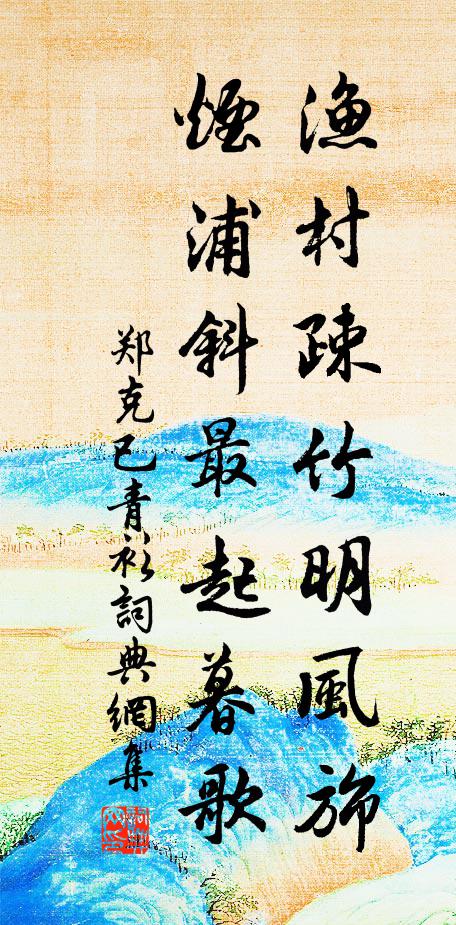 漁村疎竹明風旆
煙浦斜最起暮歌
郑克已青衫詞典網集